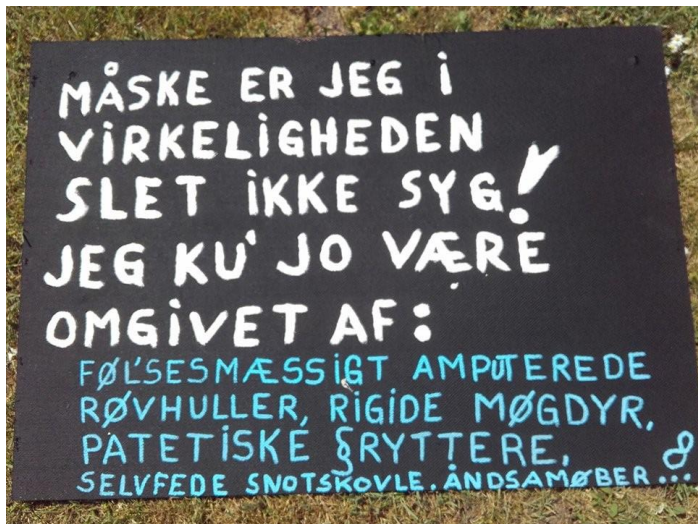 MÅSKE ER JEG i
ViRKELiGHEDEN
SLET iKKE SYG!
JEG KU' JO VÆRE
OMGiVET AF:
FØL'SESMÆSSiGT AMPUTEREDE
RØVHULLER, RiGiDE MØGDYR,
PATETiSKE §RYTTERE,
SELVFEDE SNOTSKOVLE. ÅNDSAMØBER...